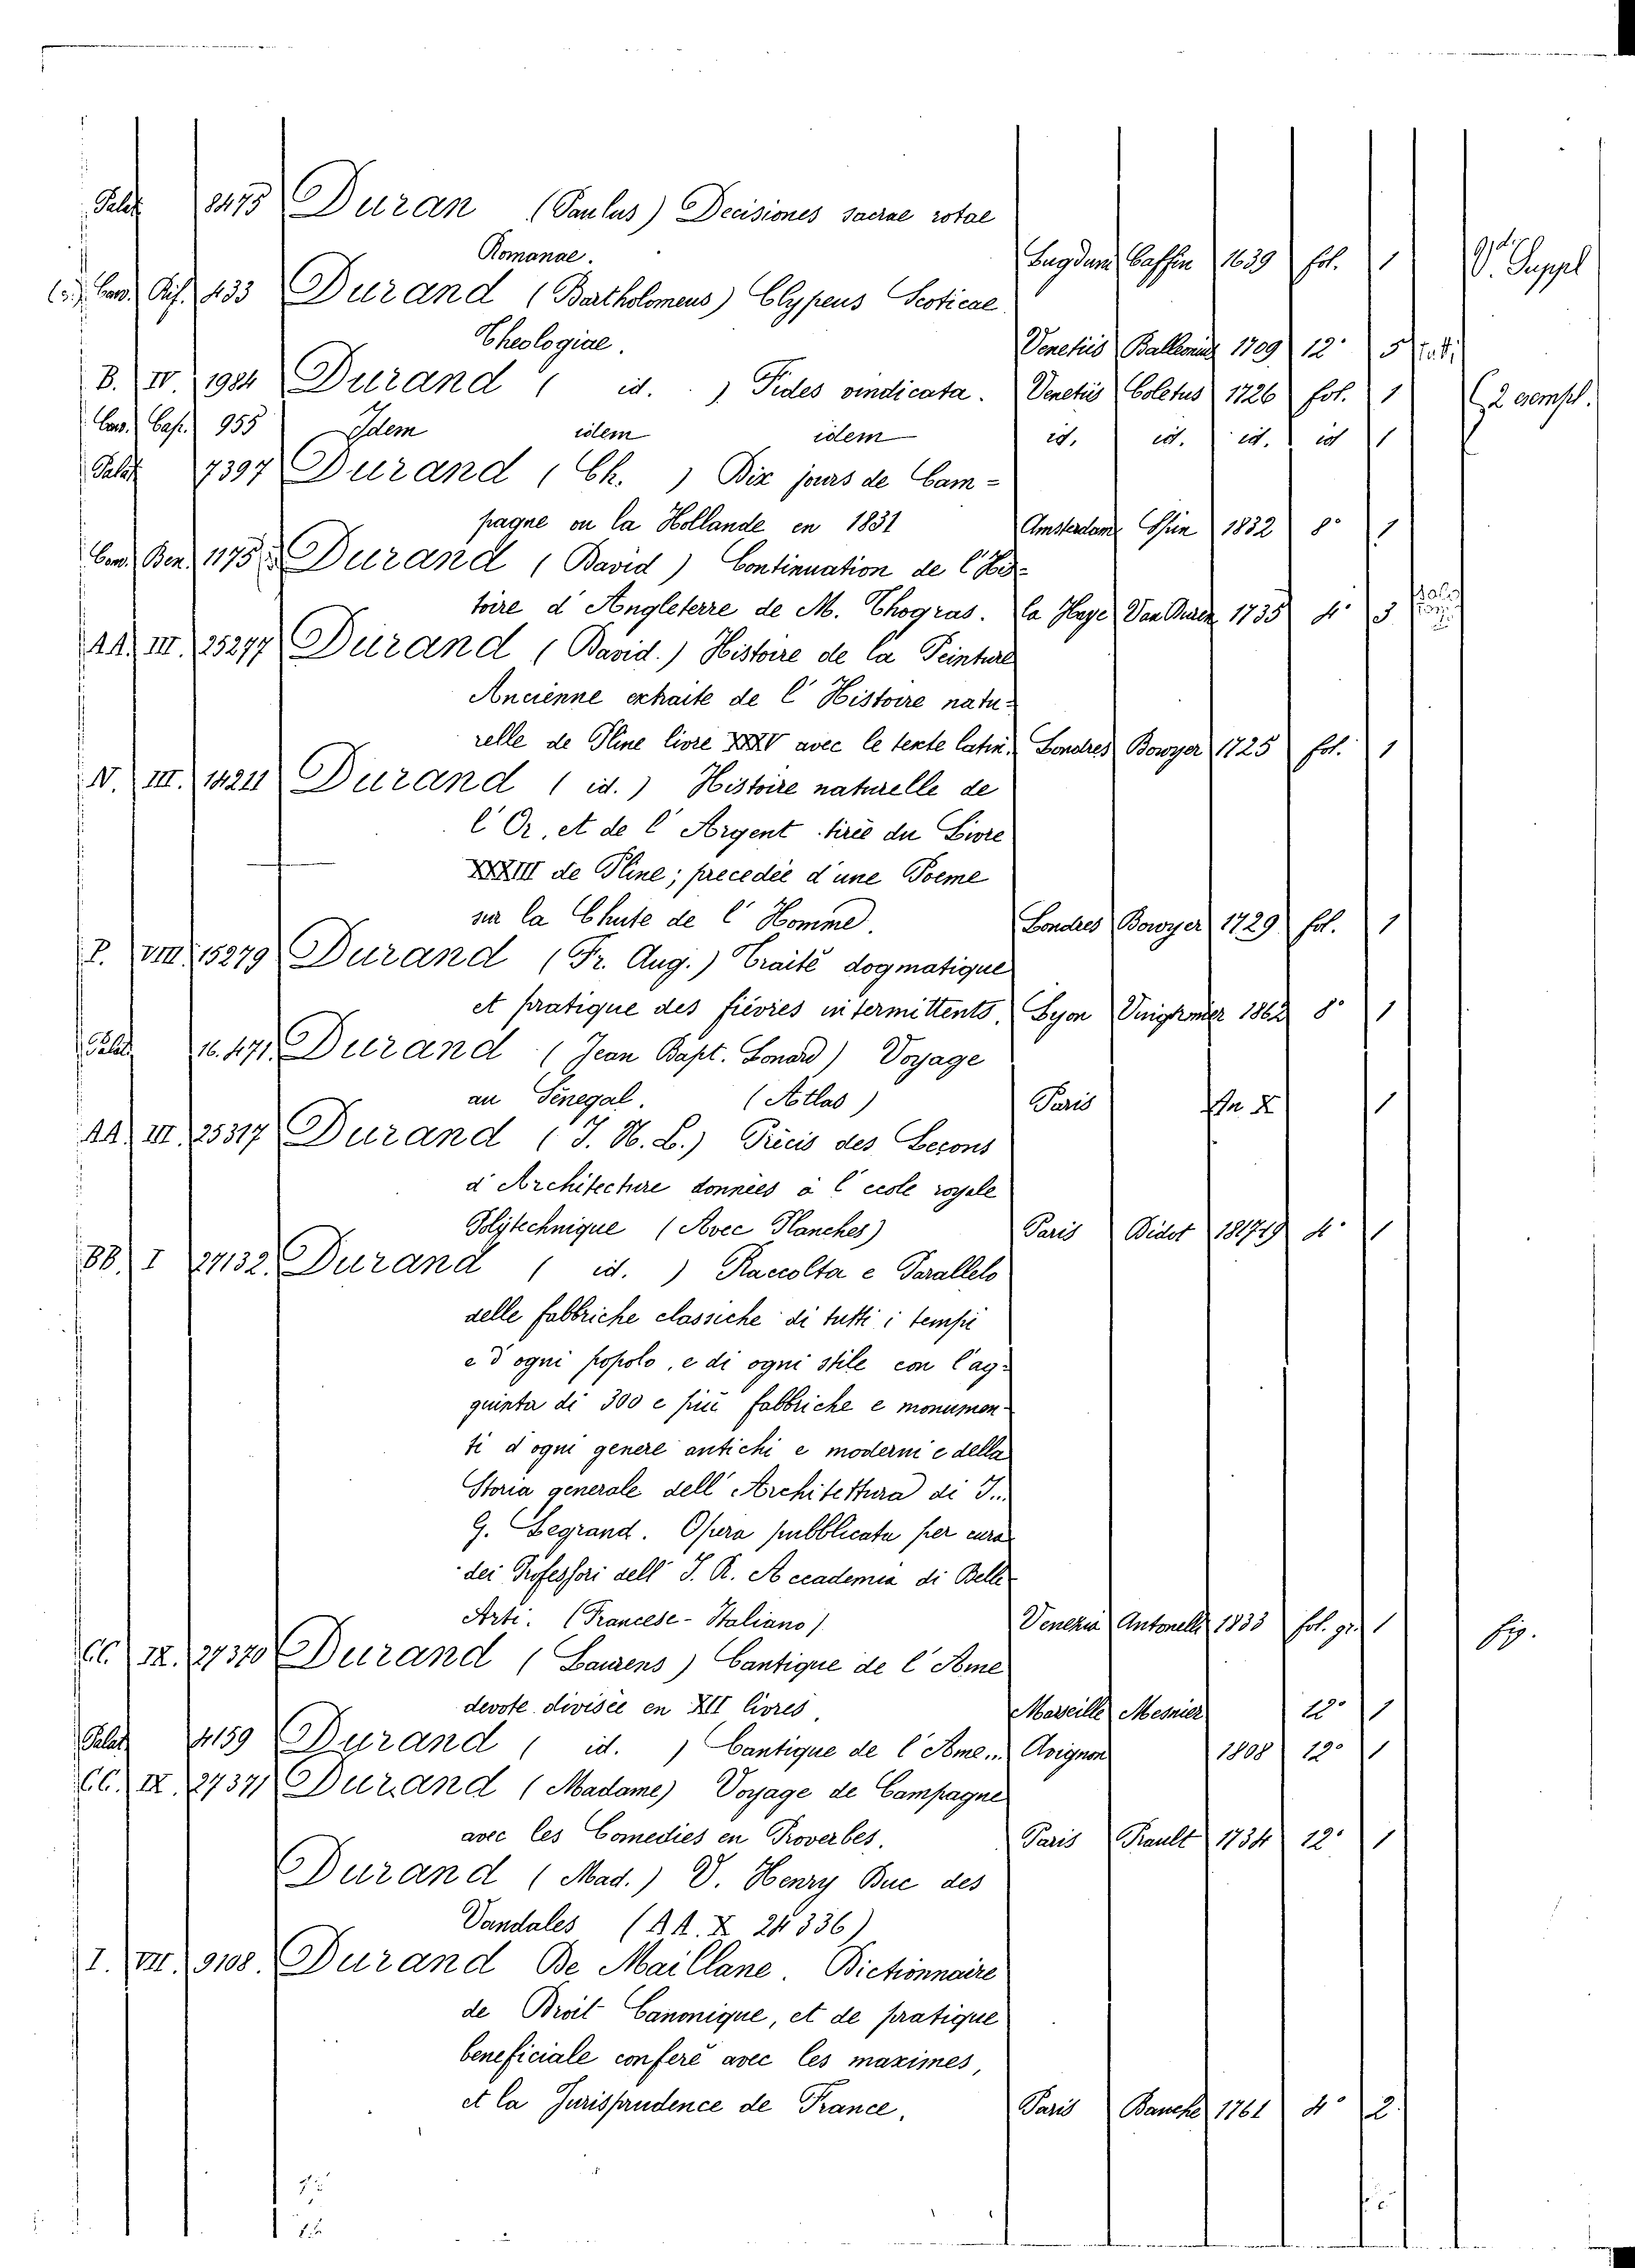 Palat 8475 Duran (Paulus) Decisiones sacrae rotae
Romanae. Lugduni Caffin 1639 fol. 1 V. Suppl
Conv. Rif. 433 Durand (Bartholomeus) Clypeus Scoticae
Theologiae. Venetiis 1709 12° 5
B. IV. 1984 Durand ( id. ) Fides vindicata. Venetiis Coletus 1726 fol. 1 (2 esempl.
Conv. Cap. 955 Idem idem idem id. id. id. id 1
Palat 7397 Durand (Ch. ) Dix jours de Cam-
pagne ou la Hollande en 1831 Amsterdam 1832 8° 1
Conv. Ben. 1175 Durand (David) Continuation de l'His-
toire d'Angleterre de M. Thogras. la Haye Van 1735 4° 3
AA. III. 25277 Durand (David.) Histoire de la Peinture
Ancienne extraite de l'Histoire natu-
relle de Pline livre XXXV avec le texte latin. Londres Bowyer 1725 fol. 1
N. III. 14211 Durand ( id. ) Histoire naturelle de
l'Or, et de l'Argent tirée du Livre
XXXIII de Pline; precedée d'une Poeme
sur la Chute de l'Homme. Londres Bowyer 1729 fol. 1
P. VIII. 15279 Durand (Fr. Aug.) Traité dogmatique
et pratique des fiévres intermittents. Lyon 1862 8° 1
Palat 16.471. Durand (Jean Bapt. Lonard) Voyage
au Sénegal. (Atlas) Paris An X 1
AA. III. 25317 Durand (J. N. L.) Précis des Lecons
d'Architecture données à l'ecole royale
Polytechnique (Avec Planches) Paris Didot 181719 4° 1
BB. I 27132. Durand ( id. ) Raccolta e Parallelo
delle fabbriche classiche di tutti i tempi
e d'ogni popolo, e di ogni stile con l'ag-
giunta di 300 e più fabbriche e monumen-
ti d'ogni genere antichi e moderni e della
Storia generale dell'Architettura di J..
G. Legrand. Opera pubblicata per cura
dei Professori dell'I. R. Accademia di Belle
Arti. (Francese-Italiano) Venezia Antonelli 1833 fol. gr. 1 fig.
CC. IX. 27370 Durand (Laurens) Cantique de l'Ame
devote divisée en XII livres. Marseille Mesnier 12° 1
Palat 4159 Durand ( id. ) Cantique de l'Ame... Avignon 1808 12° 1
CC. IX. 27371 Durand (Madame) Voyage de Campagne
avec les Comedies en Proverbes. Paris Prault 1734 12° 1
Durand (Mad.) V. Henry Duc des
Vandales (AA. X 24336)
I. VII. 9108. Durand De Maillane. Dictionnaire
de Droit Canonique, et de pratique
beneficiale conferé avec les maximes,
et la Jurisprudence de France. Paris Bauche 1761 4° 2